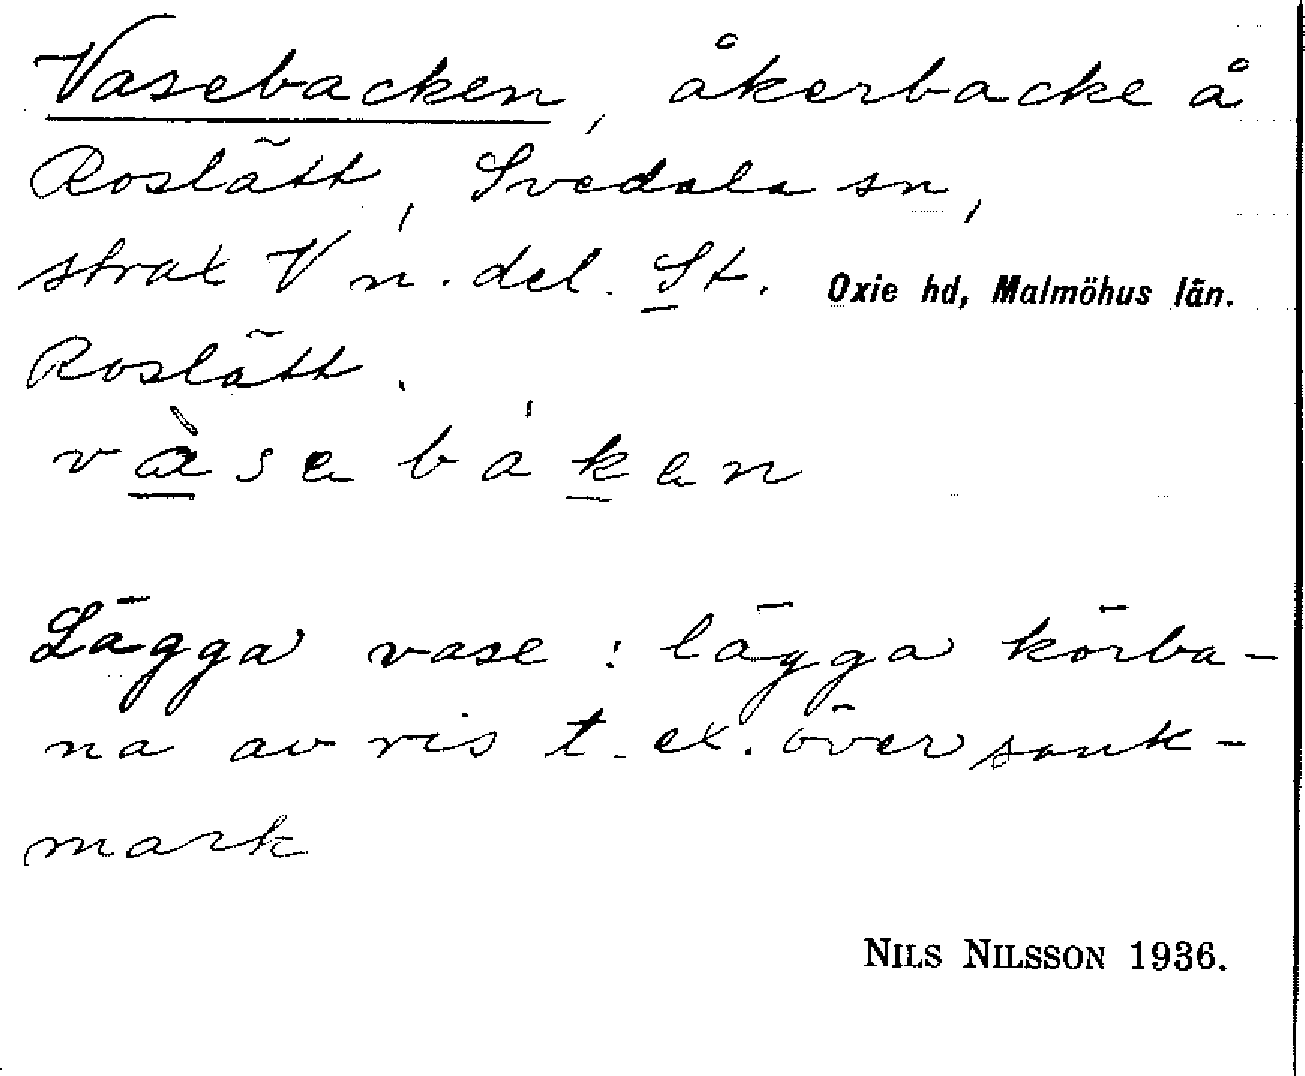 Vasebacken, åkerbacke å
Roslätt, Svedala sn,
strax V n. del. St. Oxie hd, Malmöhus län.
Roslätt.
vàsebaken
Lägga vase: lägga körba-
na av ris t. ex. över sank-
mark
NILS NILSSON 1936.